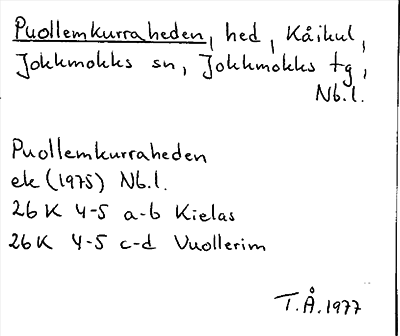 Puollemkurraheden, hed, Kåikul,
Jokkmokks sn, Jokkmokks tg,
Nb.l.
Puollemkurraheden
ek (1975) Nb.l.
26 K 4-5 a-b Kielas
26 K 4-5 c-d Vuollerim
T.Å. 1977